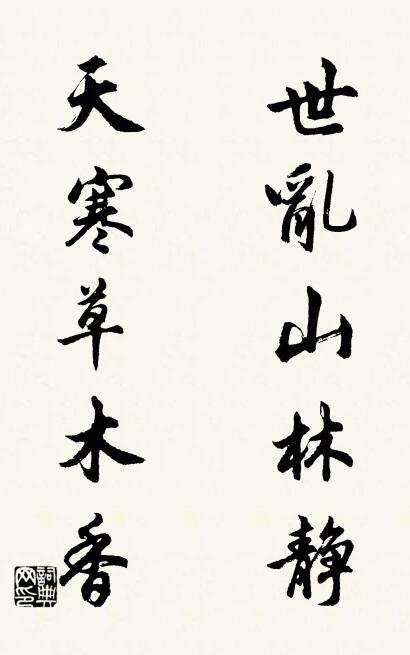 世亂山林静
天寒草木香
詞典网印